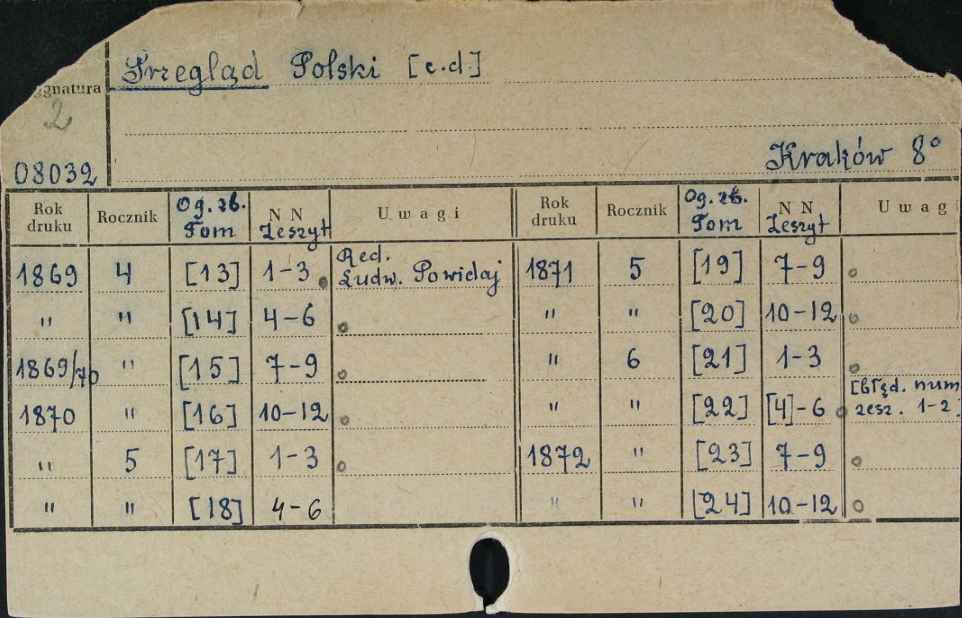 Przegląd Polski [c.d.]
gnatura
2
08032
Kraków 8°
Rok druku Rocznik Og. zb. Tom NN Zeszyt Uwagi Rok druku Rocznik Og. zb. Tom NN Zeszyt Uwagi
1869 4 [13] 1-3 Red. Ludw. Powidaj 1871 5 [19] 7-9
" " [14] 4-6 " " [20] 10-12
1869/70 " [15] 7-9 " 6 [21] 1-3
1870 " [16] 10-12 " " [22] [4]-6 [błęd. num zesz. 1-2]
" 5 [17] 1-3 1872 " [23] 7-9
" " [18] 4-6 " " [24] 10-12